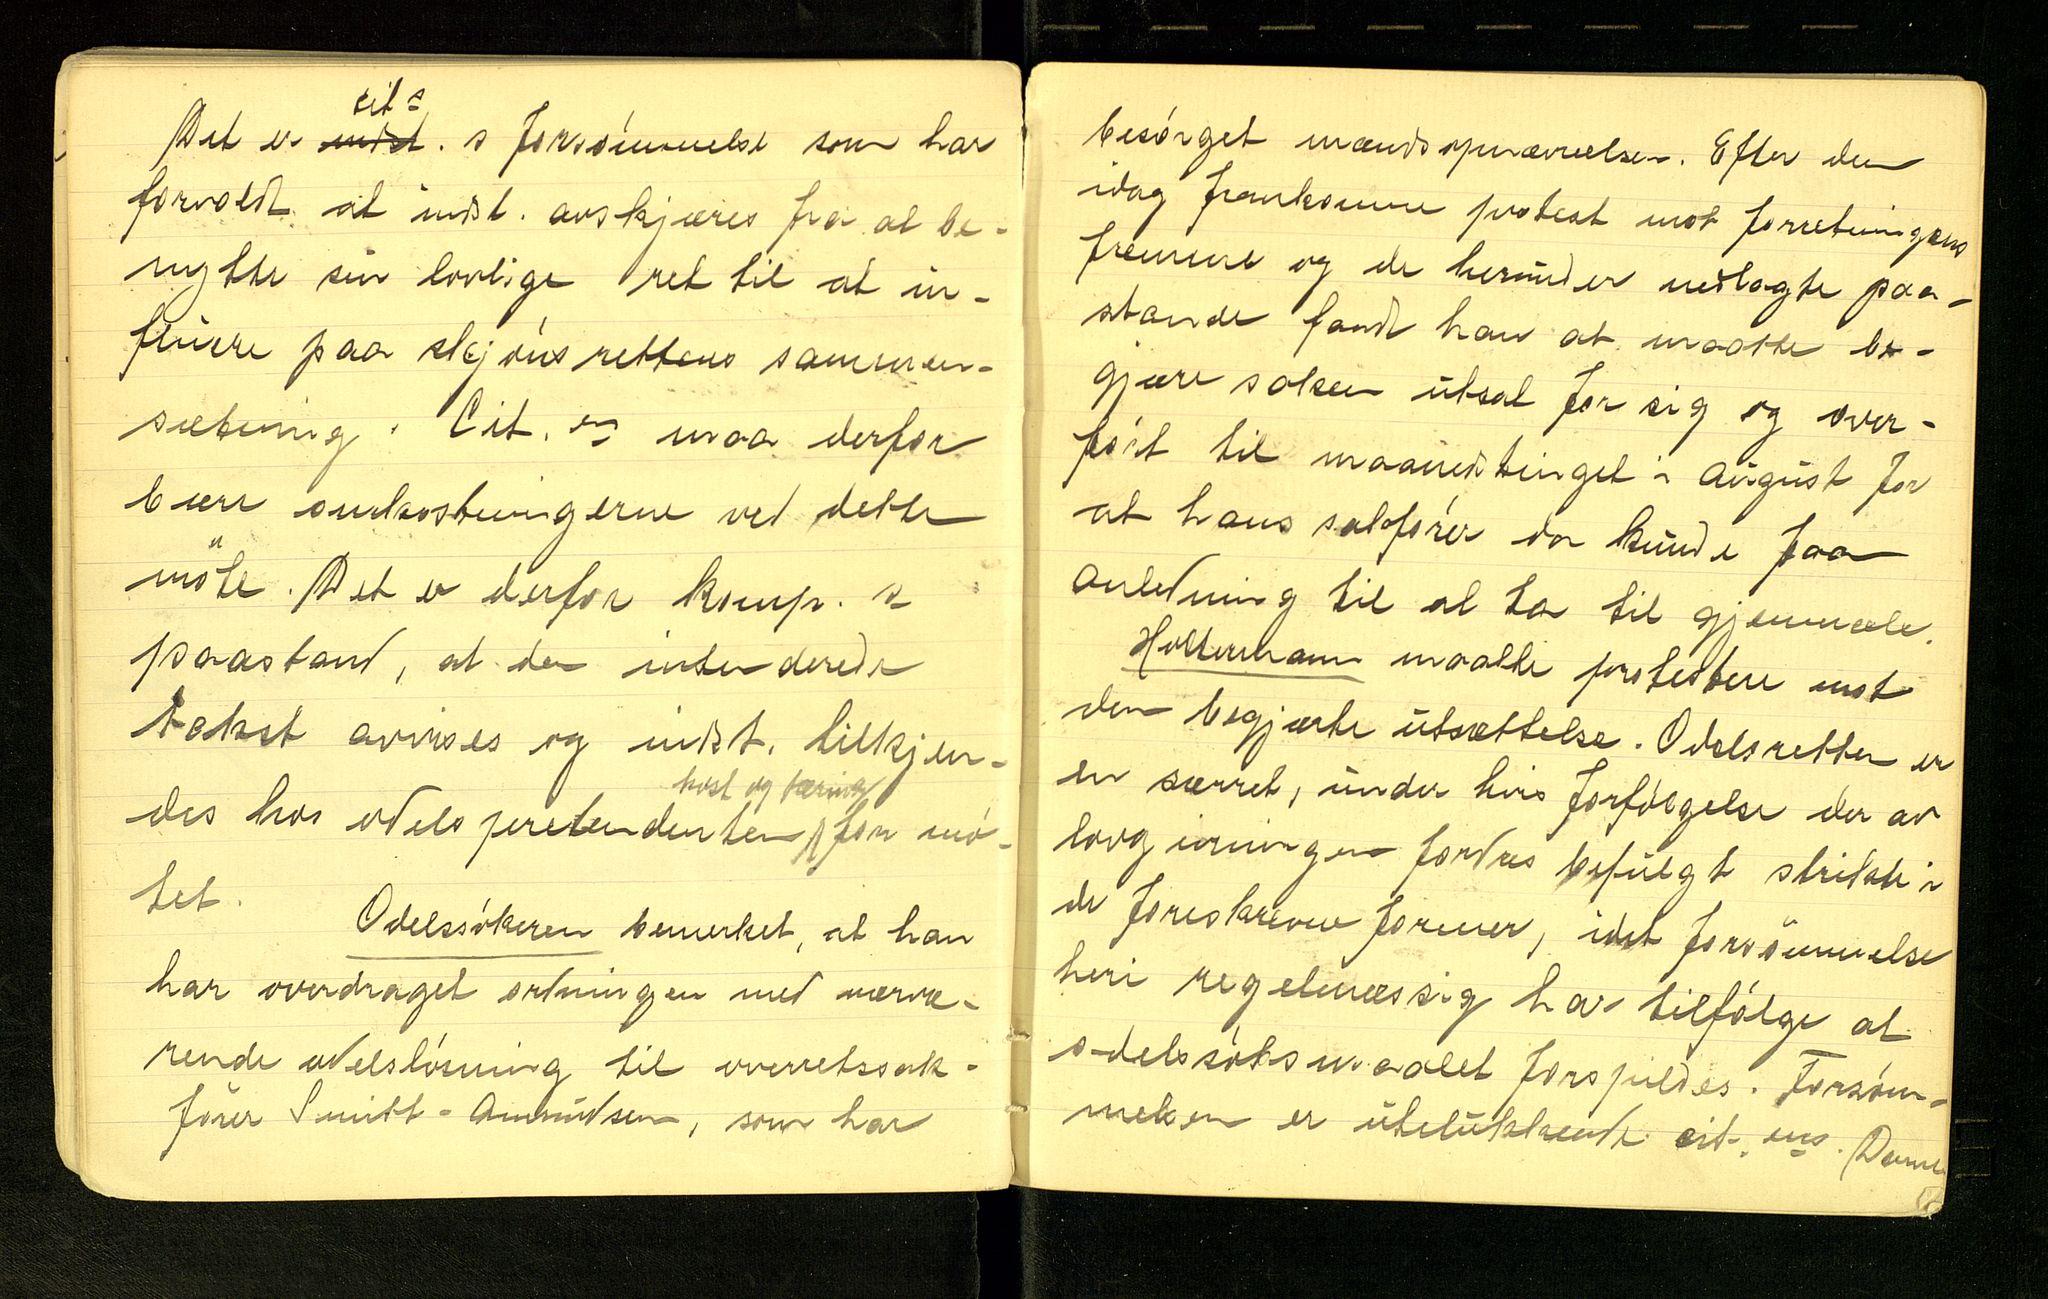 cit s
Det er indst. s forsömmelse som har
forvoldt at indst. avskjæres fra at be-
nytte sin lovlige ret til at in-
fluere paa skjönsrettens sammen-
sætning. Cit. en maa derfor
bære omkostningerne ved dette
möte. Det er derfor komp. s
paastand, at den intenderede
takst avvises og indst. tilkjen-
kost og tæring
des hos odelspretendenten for mö-
tet.
Odelssökeren bemerket, at han
har overdraget ordningen med nærvæ-
rende odelslösning til overretssak-
förer Smitt-Amundsen, som har
besörget mændsopnævnelsen. Efter den
idag fremkomne protest mot forretningens
fremme og de herunder nedlagte paa-
stande fandt han at maatte be-
gjære saken utsat for sig og over-
fört til maanedstinget i august for
at hans sakförer da kunde faa
anledning til at ta til gjenmæle.
Holtermann maatte protestere mot
den begjærte utsættelse. Odelsretten er
en særret, under hvis forfölgelse der av
lovgivningen fordres befulgt strikte i
de foreskrevne former, idet forsömmelse
heri regelmæssig har tilfölge at
odelssöksmaalet forspildes. Forsöm-
melsen er utelukkende cit. ens. Denne